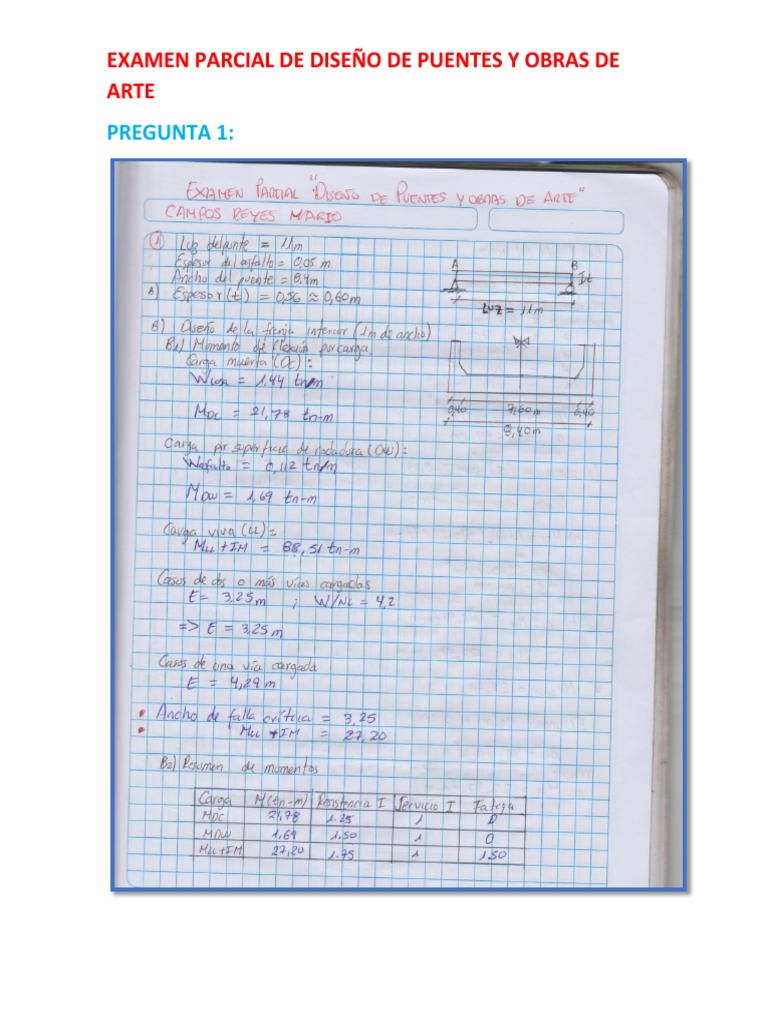 EXAMEN PARCIAL DE DISEÑO DE PUENTES Y OBRAS DE
ARTE
PREGUNTA 1:
EXAMEN PARCIAL "DISEÑO DE PUENTES Y OBRAS DE ARTE"
CAMPOS REYES MARIO
1 Luz del puente = 11m
Espesor del asfalto = 0,05 m
Ancho del puente = 8,4m
A) Espesor (t) = 0,56 ≈ 0,60m
A B
t
LUZ = 11m
B) Diseño de la franja interior (1m de ancho)
B1) Momento de flexión por carga
Carga muerta (DC):
Wlosa = 1,44 tn/m
MDC = 21,78 tn-m
0,40 7,60m 0,40
8,40m
Carga por superficie de rodadura (DW):
Wasfalto = 0,112 tn/m
MDW = 1,69 tn-m
Carga viva (LL):
MLL+IM = 88,51 tn-m
Casos de dos o más vías cargadas
E = 3,25m ; W/NL = 4,2
=> E = 3,25m
Casos de una vía cargada
E = 4,29m
• Ancho de falla crítica = 3,25
• MLL+IM = 27,20
B2) Resumen de momentos
Carga M(tn-m) Resistencia I Servicio I Fatiga
MDC 21,78 1.25 1 0
MDW 1,69 1.50 1 0
MLL+IM 27,20 1.75 1 1.50